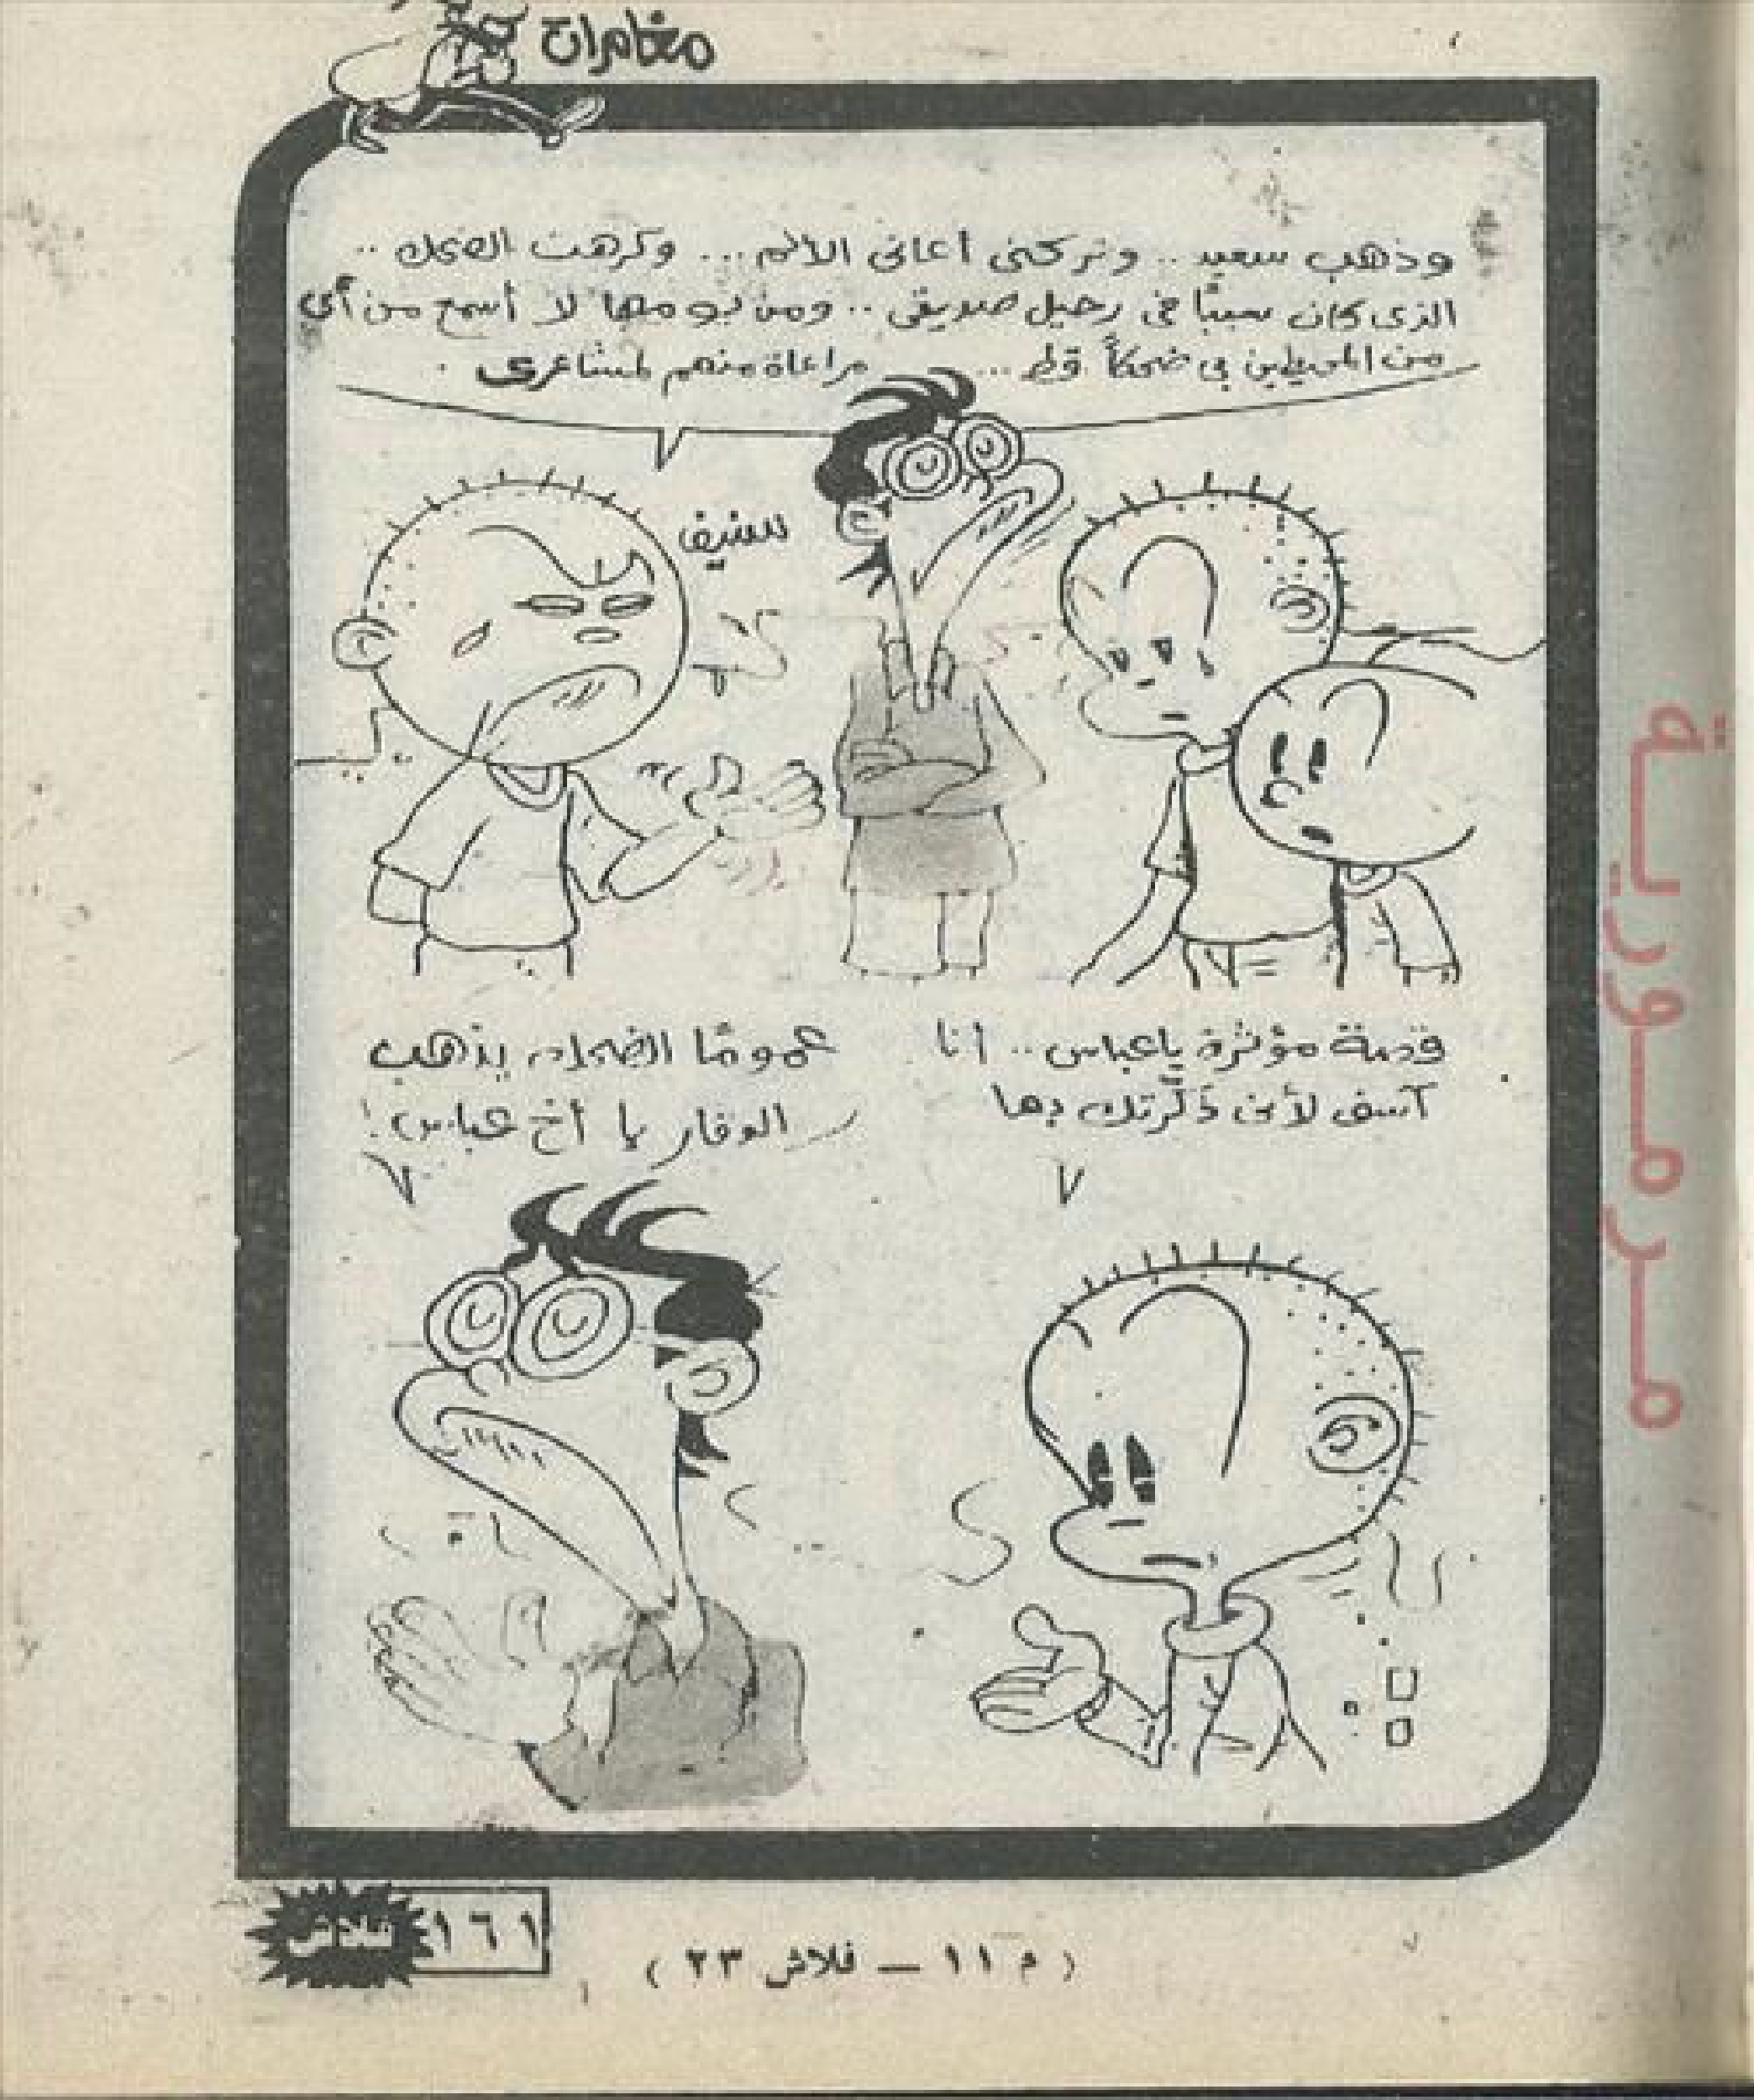 مغامرات
وذهب سعيد .. وتركنى أعانى الألم ... وكرهت الضحك ..
الذى كان سببًا فى رحيل صديقى .. ومن يومها لا أسمع من أى
من المحيطين بى ضحكاً قط ... مراعاة منهم لمشاعرى .
قصة مؤثرة ياعباس .. أنا
آسف لأنى ذكَّرتك بها
عمومًا الضحك يذهب
الوقار يا أخ عباس !
١٦١ فلاش
( م ١١ — فلاش ٢٣ )
مرمورية